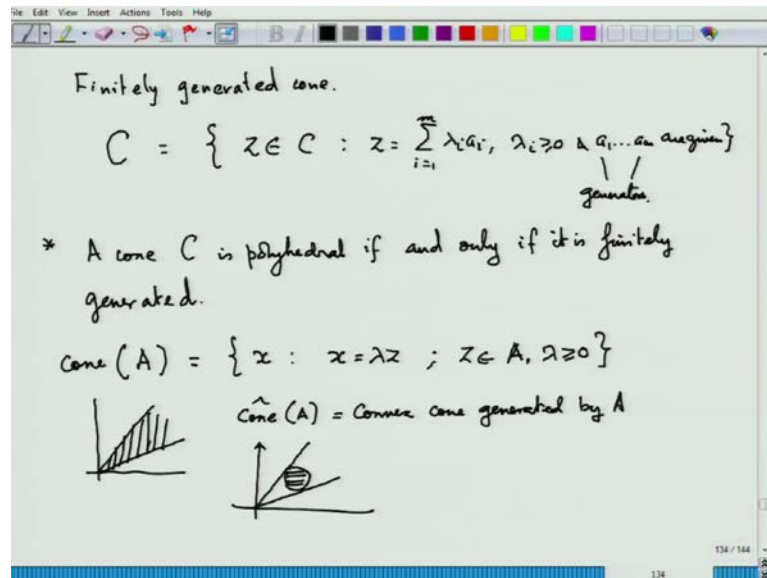 File Edit View Insert Actions Tools Help
Finitely generated cone.
C = { z ∈ C : z = Σ_{i=1}^{m} λ_i a_i, λ_i ≥ 0 & a_1 ... a_m are given }
generators.
* A cone C is polyhedral if and only if it is finitely
generated.
cone (A) = { x : x = λz ; z ∈ A, λ ≥ 0 }
côné (A) = Convex cone generated by A
134 / 144
134